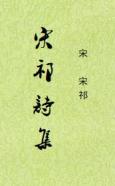 宋 宋祁
宋祁詩集